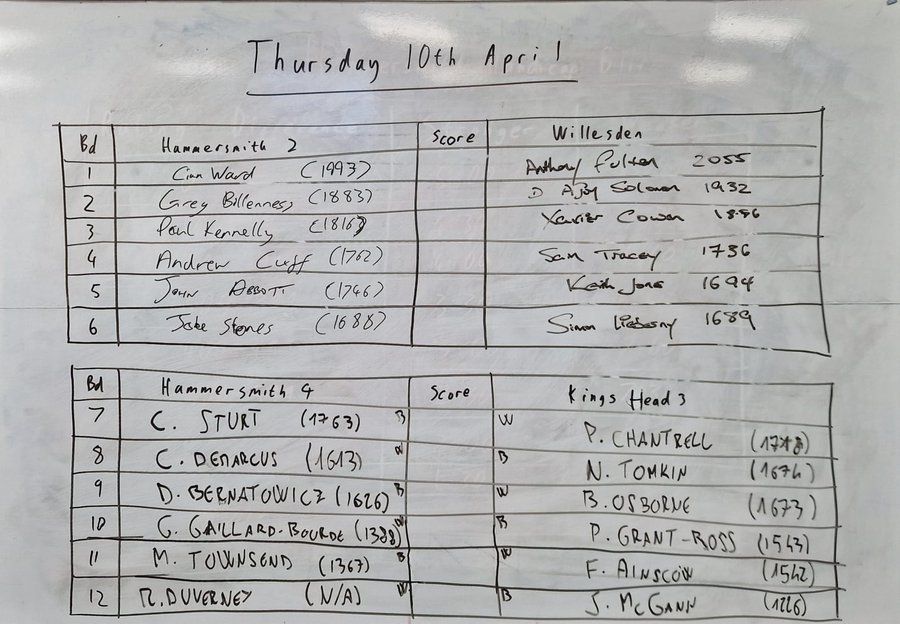 Thursday 10th April
Bd Hammersmith 2 Score Willesden
1 Cian Ward (1993) Anthony Fulton 2055
2 Greg Billenness (1883) D Ajoy Solomon 1932
3 Paul Kennelly Xavier Cowan 1886
4 Andrew Cuff (1762) Sam Tracey 1736
5 John Abbott (1746) Keith Jones 1694
6 Jake Stones (1688) Simon 1689
Bd Hammersmith 4 Score Kings Head 3
7 C. STURT (1763) B W P. CHANTRELL
8 C. DEMARCUS (1613) W B N. TOMKIN (1674)
9 D. BERNATOWICZ (1626) B W B. OSBORNE (1673)
10 G. GAILLARD-BOURDE (1388) W B P. GRANT-ROSS (1543)
11 M. TOWNSEND (1367) B W F. AINSCOW (1542)
12 R. DUVERNEY (N/A) W B J. McGANN (1226)